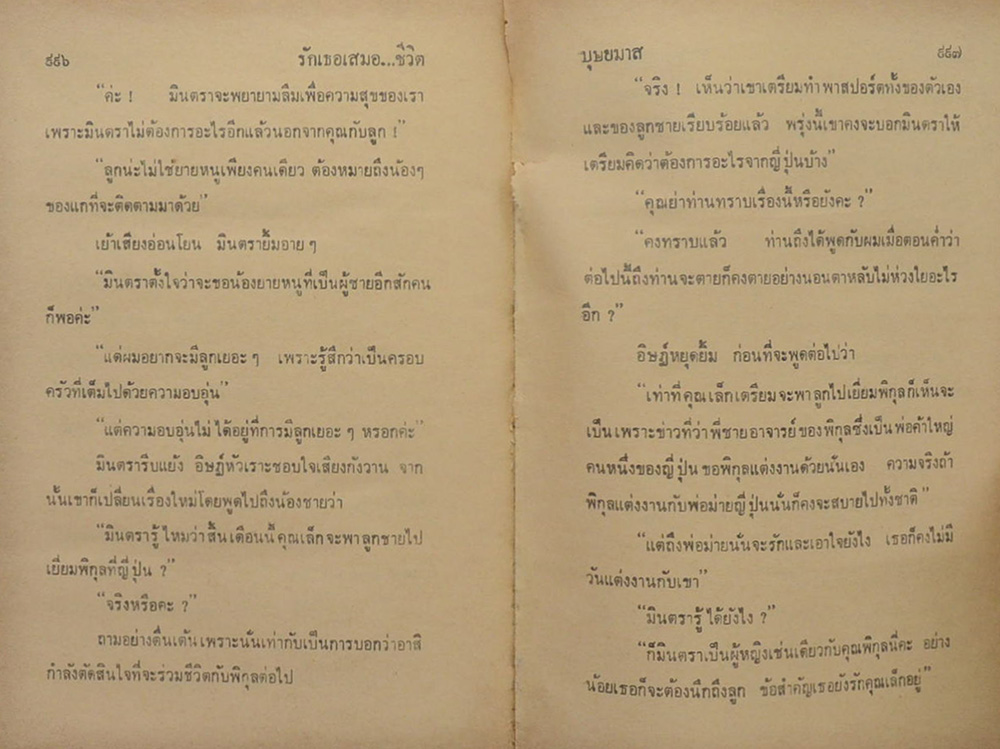 ๙๙๖ รักเธอเสมอ...ชีวิต
“ค่ะ ! มินตราจะพยายามลืมเพื่อความสุขของเรา
เพราะมินตราไม่ต้องการอะไรอีกแล้วนอกจากคุณกับลูก !”
“ลูกน่ะไม่ใช่ยายหนูเพียงคนเดียว ต้องหมายถึงน้องๆ
ของแกที่จะติดตามมาด้วย”
เย้าเสียงอ่อนโยน มินตรายิ้มอาย ๆ
“มินตราตั้งใจว่าจะขอน้องยายหนูที่เป็นผู้ชายอีกสักคน
ก็พอค่ะ”
“แต่ผมอยากจะมีลูกเยอะ ๆ เพราะรู้สึกว่าเป็นครอบ
ครัวที่เต็มไปด้วยความอบอุ่น”
“แต่ความอบอุ่นไม่ได้อยู่ที่การมีลูกเยอะ ๆ หรอกค่ะ”
มินตรารีบแย้ง อิษฏ์หัวเราะชอบใจเสียงกังวาน จาก
นั้นเขาก็เปลี่ยนเรื่องใหม่โดยพูดไปถึงน้องชายว่า
“มินตรารู้ไหมว่าสิ้นเดือนนี้คุณเล็กจะพาลูกชายไป
เยี่ยมพิกุลที่ญี่ปุ่น ?”
“จริงหรือคะ ?”
ถามอย่างตื่นเต้นเพราะนั่นเท่ากับเป็นการบอกว่าอาสิ
กำลังตัดสินใจที่จะร่วมชีวิตกับพิกุลต่อไป
บุษยมาส ๙๙๗
“จริง ! เห็นว่าเขาเตรียมทำพาสปอร์ตทั้งของตัวเอง
และของลูกชายเรียบร้อยแล้ว พรุ่งนี้เขาคงจะบอกมินตราให้
เตรียมคิดว่าต้องการอะไรจากญี่ปุ่นบ้าง”
“คุณย่าท่านทราบเรื่องนี้หรือยังคะ ?”
“คงทราบแล้ว ท่านถึงได้พูดกับผมเมื่อตอนค่ำว่า
ต่อไปนี้ถึงท่านจะตายก็คงตายอย่างนอนตาหลับไม่ห่วงใยอะไร
อีก ?”
อิษฏ์หยุดยิ้ม ก่อนที่จะพูดต่อไปว่า
“เท่าที่คุณเล็กเตรียมจะพาลูกไปเยี่ยมพิกุลก็เห็นจะ
เป็นเพราะข่าวที่ว่าพี่ชายอาจารย์ของพิกุลซึ่งเป็นพ่อค้าใหญ่
คนหนึ่งของญี่ปุ่นขอพิกุลแต่งงานด้วยนั่นเอง ความจริงถ้า
พิกุลแต่งงานกับพ่อม่ายญี่ปุ่นนั่นก็คงจะสบายไปทั้งชาติ”
“แต่ถึงพ่อม่ายนั่นจะรักและเอาใจยังไง เธอก็คงไม่มี
วันแต่งงานกับเขา”
“มินตรารู้ได้ยังไง ?”
“ก็มินตราเป็นผู้หญิงเช่นเดียวกับคุณพิกุลนี่คะ อย่าง
น้อยเธอก็จะต้องนึกถึงลูก ข้อสำคัญเธอยังรักคุณเล็กอยู่”